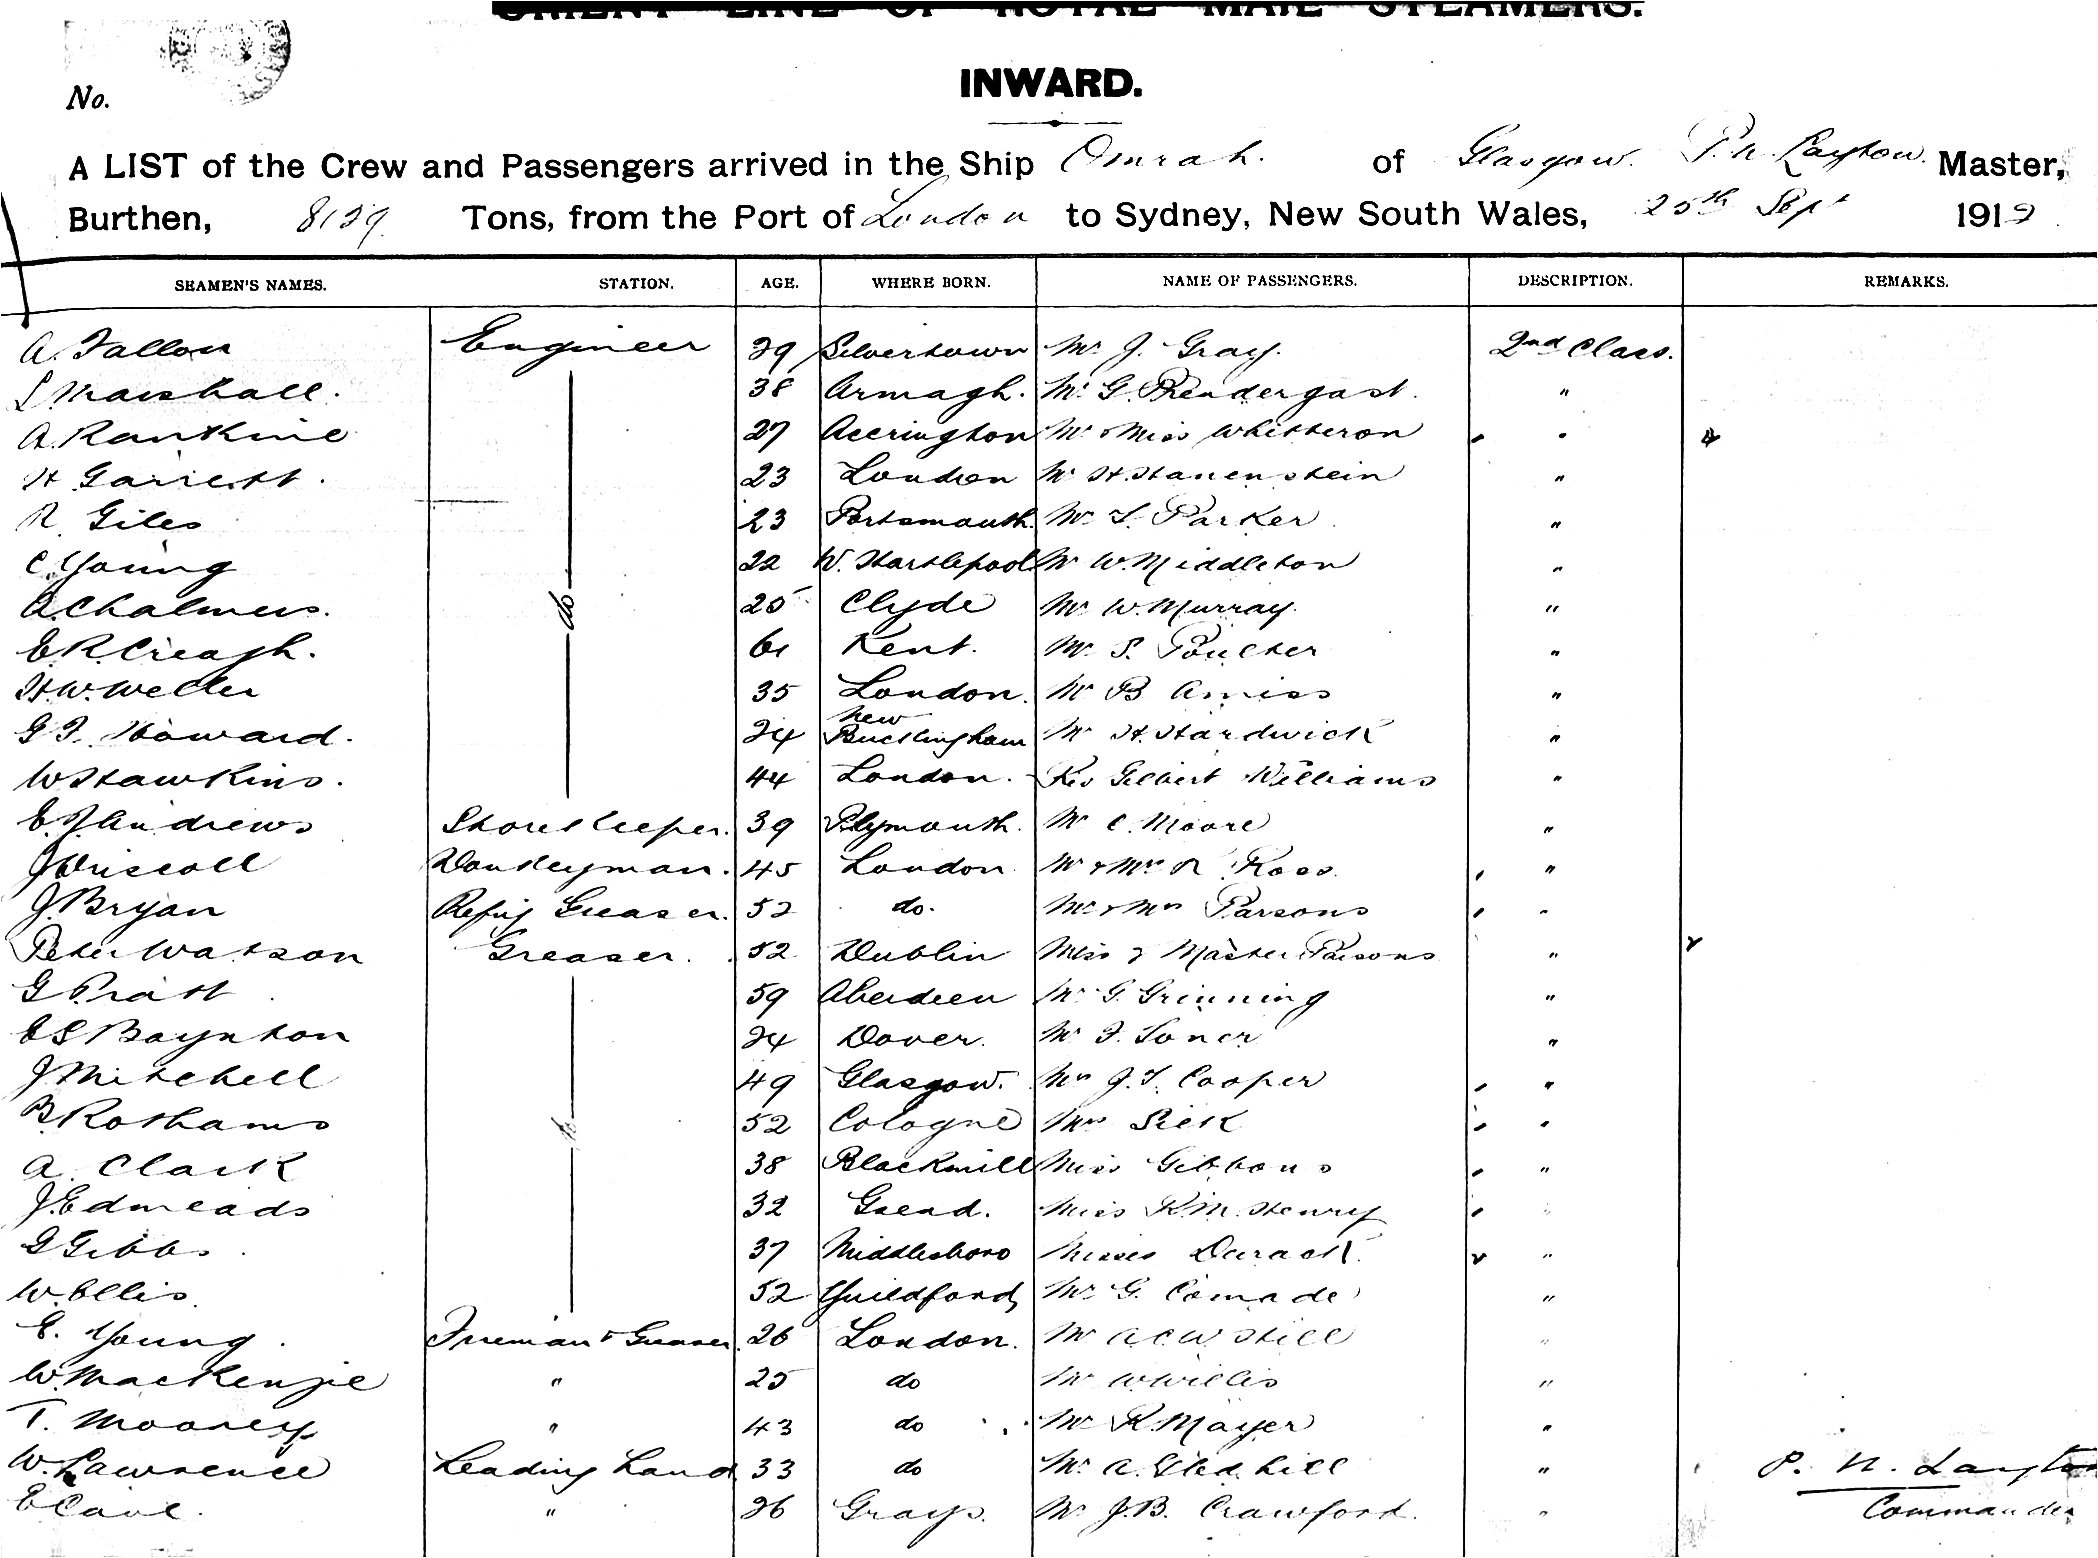 ORIENT LINE OF ROYAL MAIL STEAMERS.
INWARD.
No.
A LIST of the Crew and Passengers arrived in the Ship Omrah. of Glasgow. P. N. Layton. Master,
Burthen, 8129 Tons, from the Port of London to Sydney, New South Wales, 25th Sept 1912
SEAMEN'S NAMES. STATION. AGE. WHERE BORN. NAME OF PASSENGERS. DESCRIPTION. REMARKS.
A. Fallon Engineer 29 Silvertown Mr J. Gray. 2nd Class.
S Marshall. 38 Armagh. Mr G. Prendergast. "
A. Rankine 27 Accrington Mr & Miss Whitteron "
H Garrett. 23 London Mr H. Hanenstein "
R. Giles 23 Portsmouth. Mr T. Parker "
C. Young 22 W. Hartlepool Mr W. Middleton "
A. Chalmers. do 25 Clyde Mr W. Murray. "
E. R. Creagh. 61 Kent. Mr S. Poulter "
H. W. Weller 35 London. Mr B Amiss "
G F. Howard. 24 New Buckingham Mr H. Hardwick "
W Hawkins. 44 London. Rev Gilbert Williams "
E. J. Andrews Storekeeper. 39 Plymouth. Mr C. Moore "
J Driscoll Donkeyman. 45 London. Mr & Mrs R Ross. "
J. Bryan Refrig Greaser. 52 do. Mr & Mrs Parsons "
Peter Watson Greaser. 52 Dublin Miss & Master Parsons "
G Pratt 59 Aberdeen Mr G. Grinning "
E S Boynton 24 Dover. Mr F. Toner "
J Mitchell 49 Glasgow. Mrs J. T. Cooper "
B. Rothams do 52 Cologne Mrs Sick "
A. Clark 38 Blackmill Miss Gibbons "
J. Edmeads 32 Gsend. Miss K. M. Henry "
G Gibbs. 37 Middlesboro Misses Durack. "
W. Ellis. 52 Guildford Mr G. Comade "
E. Young Fireman & Greaser 26 London. Mr A C W Still "
W. MacKenzie " 25 do Mr W Willis "
T. Mooney " 43 do Mr R. Mayer "
W. Lawrence Leading hand 33 do Mr A. Gledhill " P. N. Layton
E Cave. " 26 Grays. Mr J. B. Crawford. " Commander